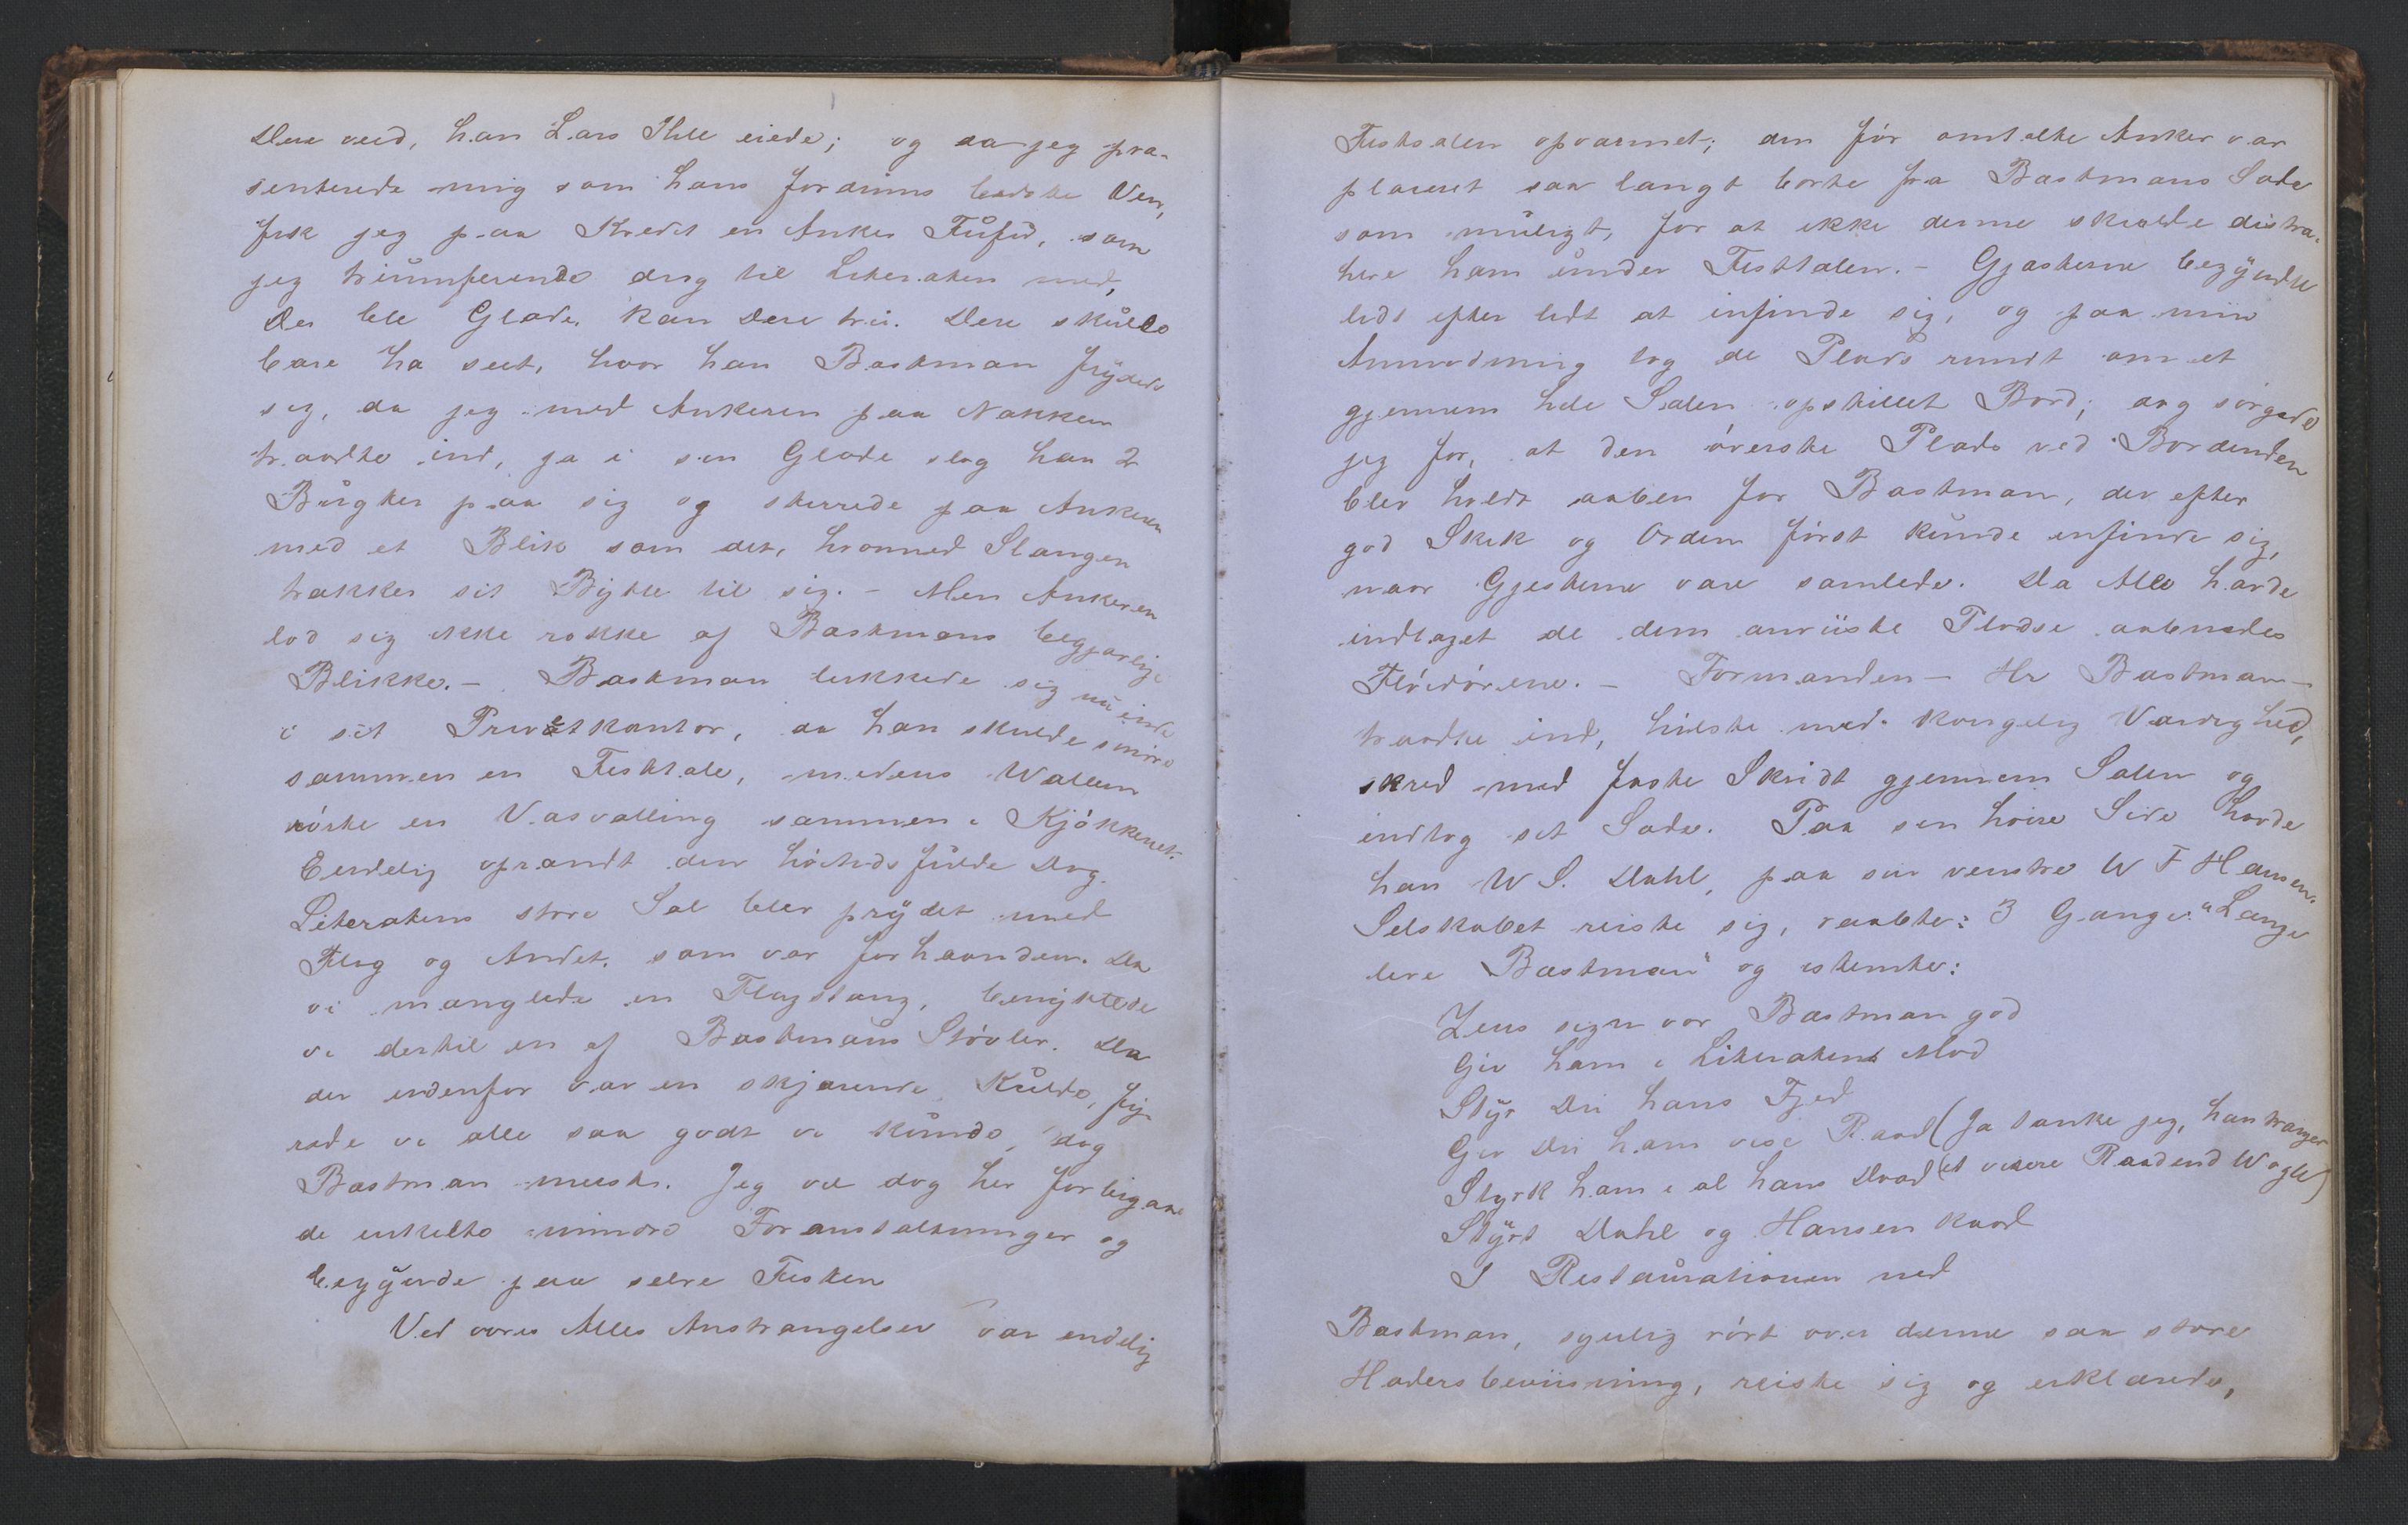 Dere veed, han Lars Ihle eiede; og da jeg præ-
senterede mig som hans fordums bedste Ven,
fik jeg paa Kredit en Anker Fusel, som
jeg triumferende drog til Literaten med,
Der ble Glæde, kan Dere tro. Dere skulle
bare ha seet, hvor han Bastman frydede
sig, da jeg med Ankeren paa Nakken
traadte ind, ja i sin Glæde slog han 2
Bugter paa sig og stirrede paa Ankeren
med et Blik som det, hvormed Slangen
trækker sit Bytte til sig. – Men Ankeren
lod sig ikke rokke af Bastmans begjærlige
Blikke. – Bastman lukkede sig nu inde
i sit Privatkontor, da han skulde smøre
sammen en Festtale, medens Wallem
rørte en Vasvælling sammen i Kjøkkenet.
Endelig oprandt den høitidsfulde Dag.
Literatens store Sal blev prydet med
Flag og Andet, som var forhaanden. Da
vi manglede en Flagstang, benyttede
vi dertil en af Bastmans Støvler. Da
der udenfor var en skjærende Kulde, fy-
rede vi alle saa godt vi kunde, dog
Bastman meest. Jeg vil dog her forbigaa
de enkelte mindre Foranstaltninger og
begynde paa selve Festen
Ved vores Alles Anstrængelser var endelig
Festsalen opvarmet; den før omtalte Anker var
placeret saa langt borte fra Bastmans Sæde
som muligt, for at ikke denne skulde distra-
here ham under Festtalen. – Gjæsterne begyndte
lidt efter lidt at infinde sig, og paa min
Anmodning tog de Plads rundt om et
gjennem hele Salen opstillet Bord; dog sørgede
jeg for, at den øverste Plads ved Bordenden
blev holdt aaben for Bastman, der efter
god Skik og Orden først kunde infinde sig,
naar Gjesterne vare samlede. Da Alle havde
indtaget de dem anviiste Pladse aabnedes
Fløidørene. – Formanden – Hr Bastman –
traadte ind, hilste med kongelig Værdighed,
skred med faste Skridt gjennem Salen og
indtog sit Sæde. Paa sin høire Side havde
han W S. Dahl, paa sin venstre W F Hansen.
Selskabet reiste sig, raabte: 3 Gange: "Længe
leve Bastman" og istemte:
Zeus signe vor Bastman god
Giv ham i Literaten Mod
Styr Du hans Fjed
Giv Du ham vise Raad (Ja tænke jeg, han trænger
Styrk ham i al hans Daad (et visere Raad end Wogle)
Styrt Dahl og Hansen kaad
I Restaurationen ned
Bastman, synlig rørt over denne saa store
Hædersbeviisning, reiste sig og erklærede,